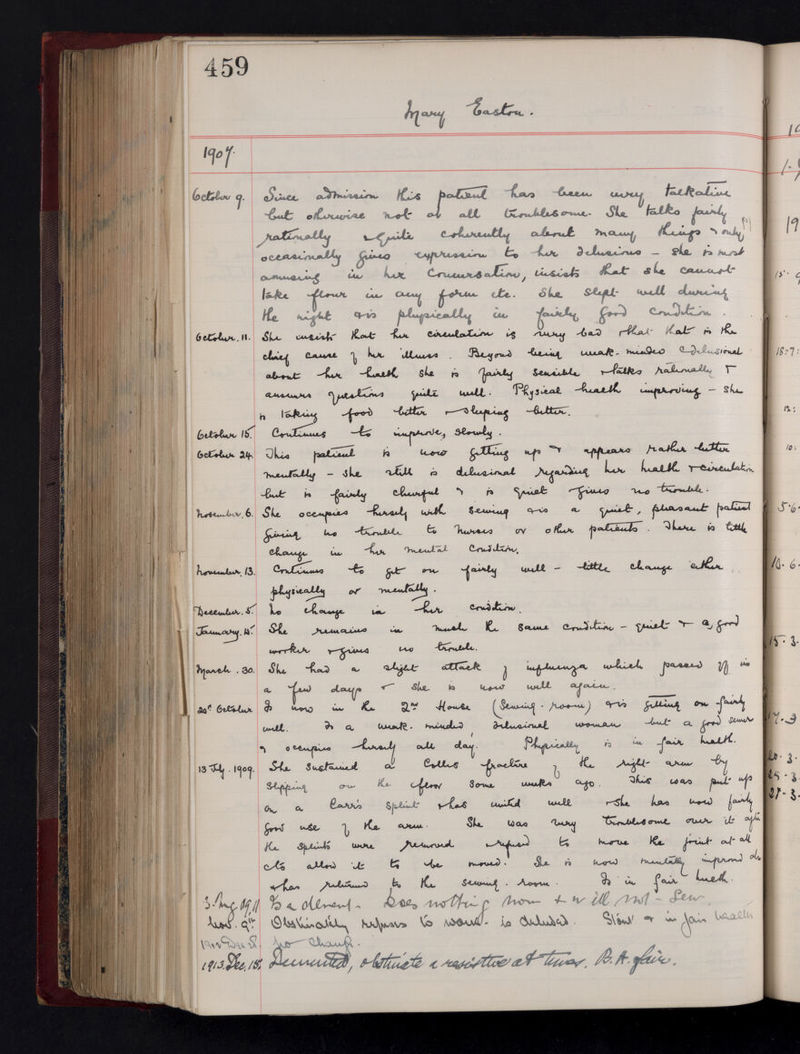 459
Mary Easton.
1907.
October 9. Since admission this patient has been very talkative
but otherwise not at all troublesome. She talks fairly
rationally & quite coherently about many things & only
occasionally gives expression to her delusions – She is most
amusing in her conversation, insists that she cannot
take flour in any form etc. She slept well during
the night & is physically in fairly good condition.
October. 11. She insists that her circulation is very bad & that that is the
chief cause of her illness. Beyond being weak-minded & delusional
about her health she is fairly sensible & talks rationally &
answers questions quite well. Physical health improving – She
is taking food better & sleeping better.
October 15. Continues to improve, slowly.
October 24. This patient is now getting up & appears rather better
mentally – She still is delusional regarding her health & circulation
but is fairly cheerful & is quiet & gives no trouble.
November. 6. She occupies herself with sewing & is a quiet, pleasant patient
giving no trouble to nurses or other patients. There is little
change in her mental condition.
November. 13. Continues to get on fairly well – little change either
physically or mentally.
December. 5. No change in her condition.
January. 15. She remains in much the same condition – quiet & a good
worker & gives no trouble.
March. 30. She had a slight attack of influenza which passed off in
a few days & she is now well again.
20th October Is now in the 2nd House (Sewing-room) & is getting on fairly
well. Is a weak-minded, delusional woman but a good sewer
& occupies herself all day. Physically is in fair health.
13 July. 1909. She sustained a Colles fracture of the right arm by
slipping on the floor some weeks ago. This was put up
on a Carr's splint & has united well & she has now fairly
good use of the arm. She was very troublesome over it after
the splints were removed & refused to move the joint at all
or to allow it to be moved. She is now mentally improved
& has returned to the sewing-room. Is in fair health.
3. Aug. Is a dement. Does nothing now & will not sew.
Nov. 9th Obstinately refuses to work. Is deluded. Stout & in fair health
No change.
1913. Dec. 15. Demented, obstinate & resistive at times. B.H. fair.